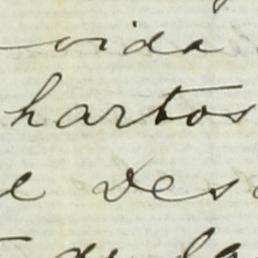 vida
hartos
e des